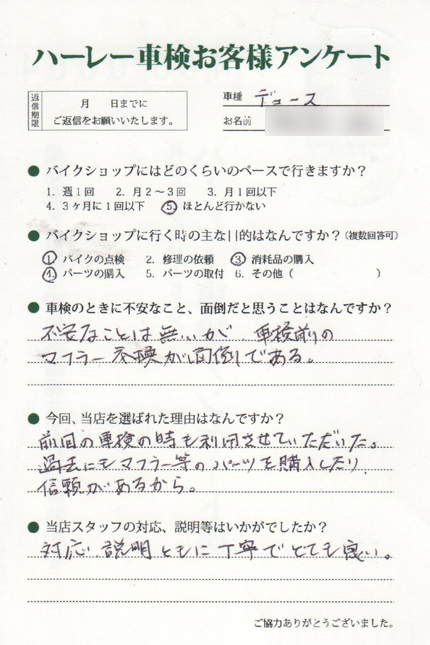 ハーレー車検お客様アンケート
返信期限
月　　日までに
ご返信をお願いいたします。
車種 デュース
お名前
● バイクショップにはどのくらいのペースで行きますか？
1. 週1回　2. 月2～3回　3. 月1回以下
4. 3ヶ月に1回以下　⑤ ほとんど行かない
● バイクショップに行く時の主な目的はなんですか？(複数回答可)
① バイクの点検　2. 修理の依頼　③ 消耗品の購入
④ パーツの購入　5. パーツの取付　6. その他（　　　　　）
● 車検のときに不安なこと、面倒だと思うことはなんですか？
不安なことは無いが、車検前の
マフラー交換が面倒である。
● 今回、当店を選ばれた理由はなんですか？
前回の車検の時も利用させていただいた。
過去にもマフラー等のパーツを購入したり
信頼があるから。
● 当店スタッフの対応、説明等はいかがでしたか？
対応、説明ともに丁寧でとても良い。
ご協力ありがとうございました。